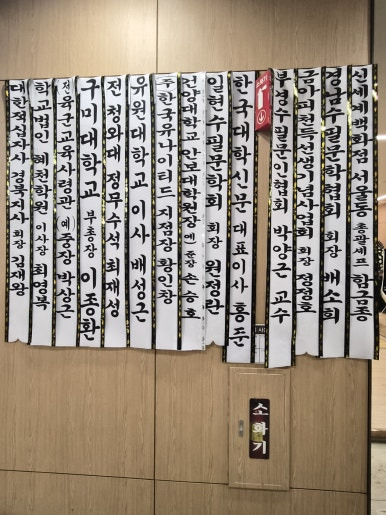 대한적십자사 경북지사 회장 김재왕
학교법인 혜천학원 이사장 최영복
(전)육군교육사령관 (예)중장 박상근
구미대학교 부총장 이종환
전 청와대 정무수석 최재성
유원대학교 이사 배성근
주한국유나이티드 지점장 황인창
건양대학교 안보대학원장 예)준장 손승호
일현수필문학회 회장 원정란
한국대학신문 대표이사 홍준
부경수필문인협회 박양근 교수
금아피천득선생기념사업회 회장 정정호
경남수필문학협회 회장 배소희
신세계백화점 서울동 총괄셰프 함금종
소화기